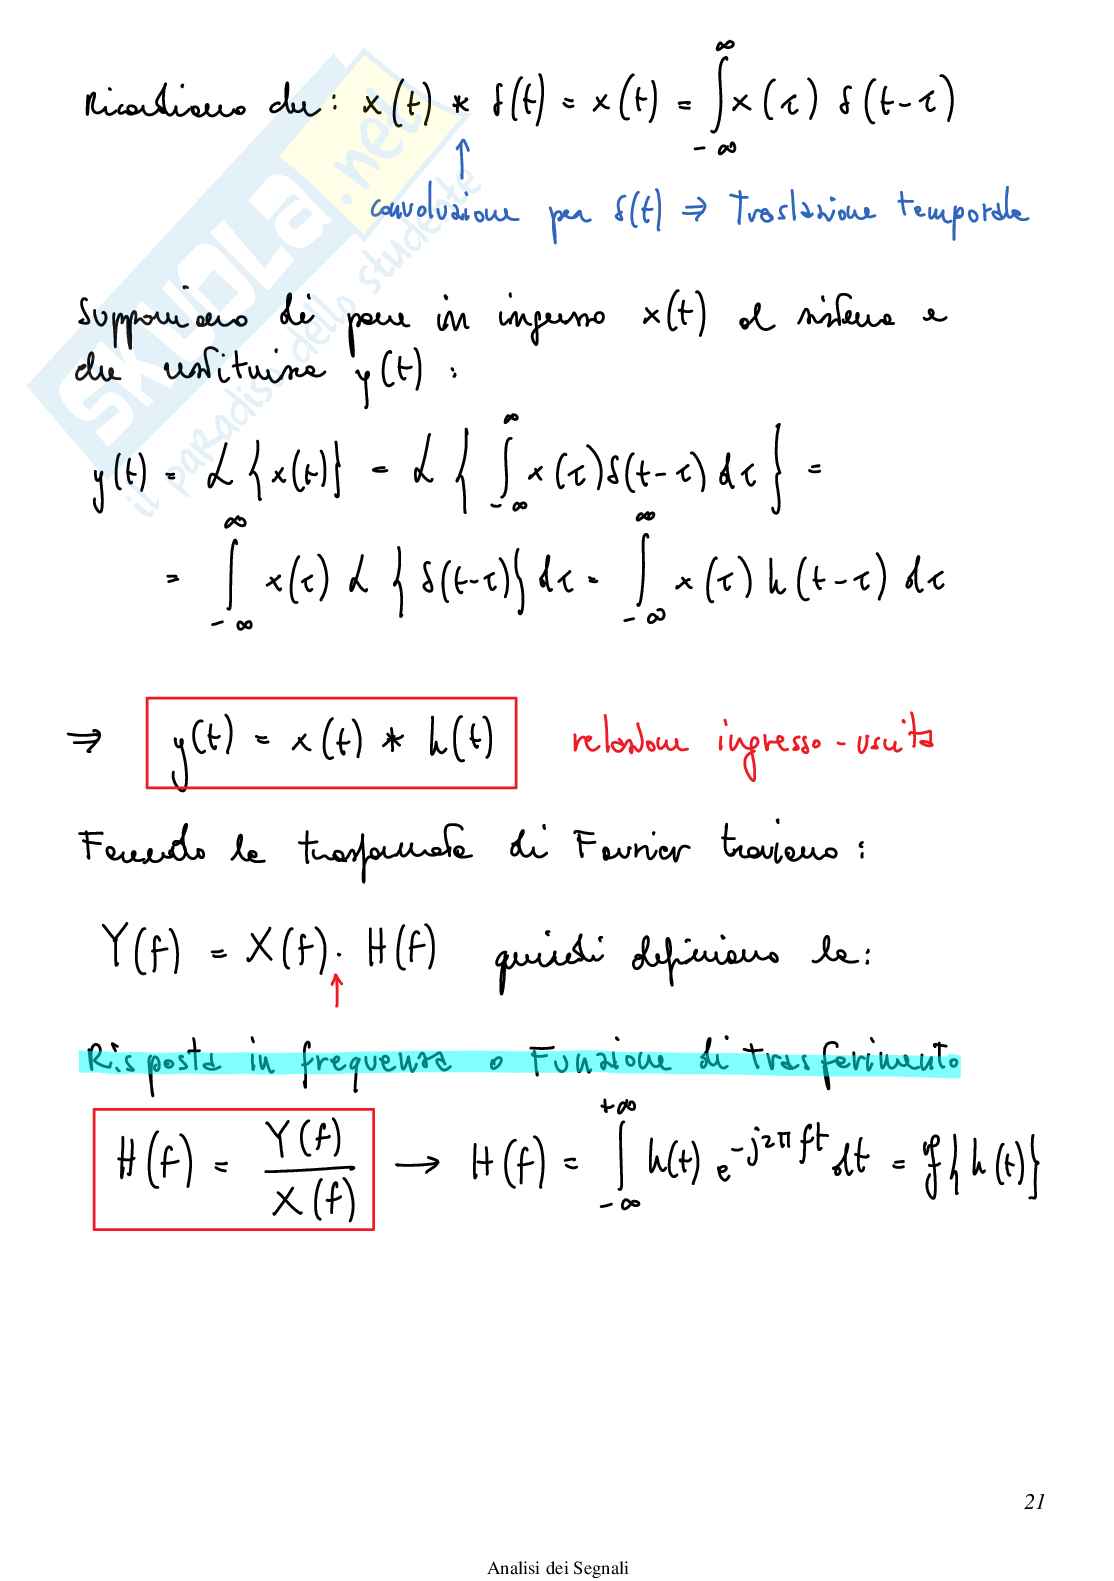 Ricordiamo che: x(t) * δ(t) = x(t) = ∫_{-∞}^{∞} x(τ) δ(t-τ)
↑
convoluzione per δ(t) ⇒ Traslazione temporale
SKUOLA.net
il paradiso dello studente
Supponiamo di porre in ingresso x(t) al sistema e
che restituisca y(t) :
y(t) = L{x(t)} = L{ ∫_{-∞}^{∞} x(τ)δ(t-τ) dτ } =
= ∫_{-∞}^{∞} x(τ) L{δ(t-τ)} dτ = ∫_{-∞}^{∞} x(τ) h(t-τ) dτ
⇒ y(t) = x(t) * h(t) relazione ingresso-uscita
Facendo la trasformata di Fourier troviamo :
Y(f) = X(f) · H(f) quindi definiamo la:
↑
Risposta in frequenza o Funzione di trasferimento
H(f) = Y(f) / X(f) → H(f) = ∫_{-∞}^{+∞} h(t) e^{-j2πft} dt = F{h(t)}
21
Analisi dei Segnali